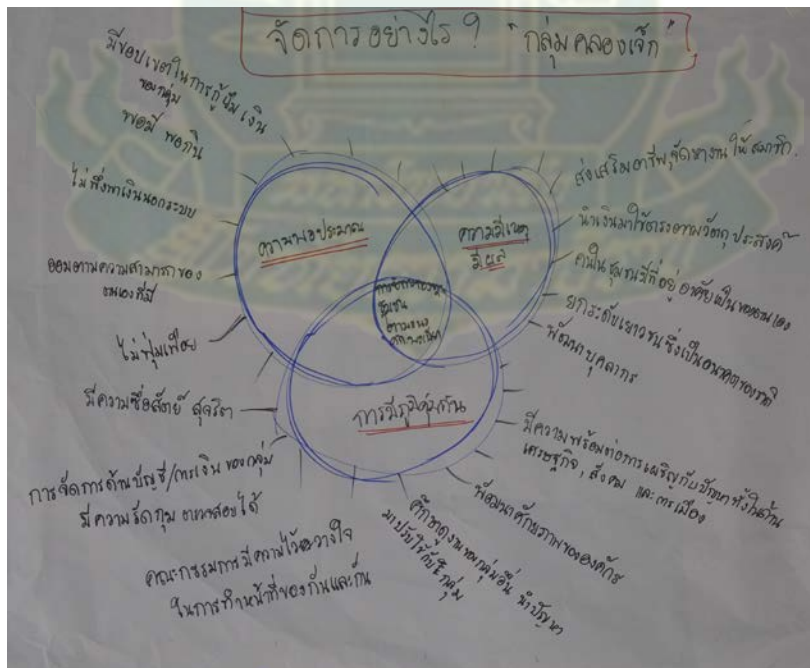 จัดการอย่างไร? "กลุ่มคลองเจ็ก"
มีขอบเขตในการกู้ยืมเงิน
ของกลุ่ม
พอมี พอกิน
ไม่พึ่งพาเงินนอกระบบ
ออมตามความสามารถของ
ตนเองที่มี
ไม่ฟุ่มเฟือย
มีความซื่อสัตย์ สุจริต
การจัดการด้านบัญชี/การเงิน ของกลุ่ม
มีความรัดกุม ตรวจสอบได้
คณะกรรมการมีความไว้วางใจ
ในการทำหน้าที่ของกันและกัน
ความพอประมาณ
ความมีเหตุ
มีผล
ชุมชน
การมีภูมิคุ้มกัน
ส่งเสริมอาชีพ,จัดหางาน ให้สมาชิก
นำเงินมาใช้ตรงตามวัตถุประสงค์
คนในชุมชนมีที่อยู่อาศัยเป็นของตนเอง
ยกระดับเยาวชนซึ่งเป็นอนาคตของชาติ
พัฒนาบุคลากร
มีความพร้อมต่อการเผชิญกับปัญหาทั้งในด้าน
เศรษฐกิจ, สังคม และการเมือง
พัฒนาศักยภาพขององค์กร
ศึกษาดูงานของกลุ่มอื่น นำปัญหา
มาปรับใช้กับกลุ่ม